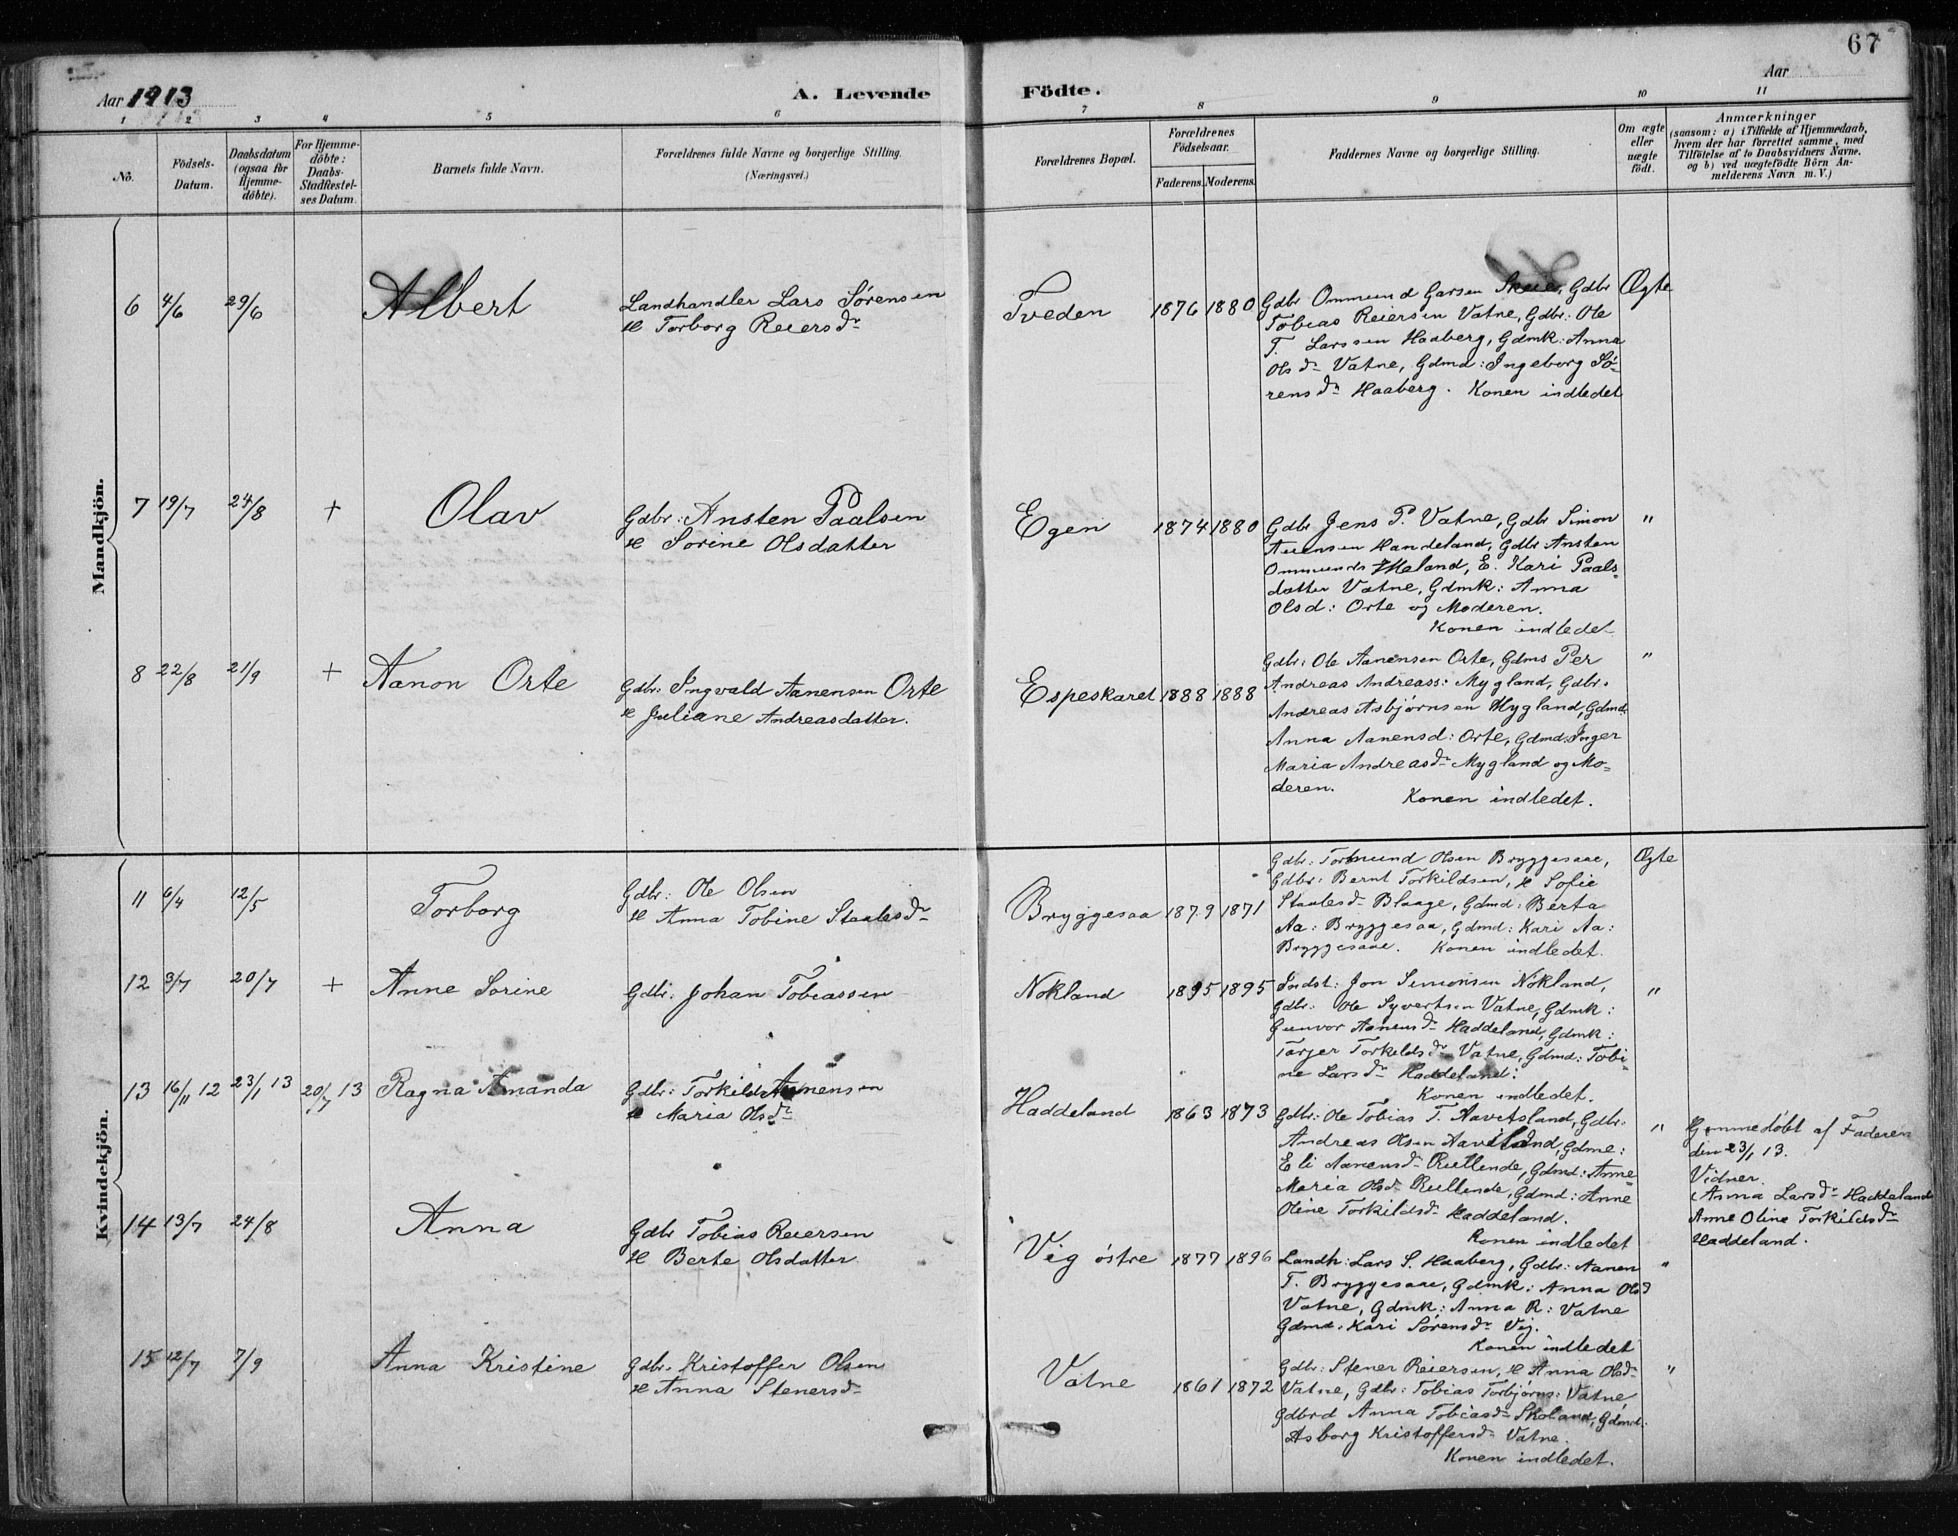 67
Aar 1913
A. Levende Födte.
Aar
1 2 3 4 5 6 7 8 9 10 11
No.
Födsels-Datum.
Daabsdatum (ogsaa for Hjemmedöbte).
For Hjemmedöbte: Daabs-Stadfestelses Datum.
Barnets fulde Navn.
Forældrenes fulde Navne og borgerlige Stilling.
(Næringsvei.)
Forældrenes Bopæl.
Forældrenes Födselsaar.
Faderens. Moderens.
Faddernes Navne og borgerlige Stilling.
Om ægte eller uægte födt.
Anmærkninger
(saasom: a) i Tilfælde af Hjemmedaab, hvem der har forrettet samme, med Tilföielse af to Daabsvidners Navne. og b) ved uegtefödte Börn Anmelderens Navn m. V.)
Mandkjön.
6 4/6 29/6 Albert
Landhandler Lars Sørensen
& Torborg Reiersdr
Tveden 1876 1880
Gdbr Ommund Garsen Skeie, Gdbr
Tobias Reiersen Vatne, Gdbr: Ole
T. Larssen Haaberg, Gdmk: Anna
Olsdr Vatne, Gdmd: Ingeborg Sø-
rensdr Haaberg. Konen indledet
Ægte
7 19/7 24/8 + Olav
Gdbr: Ansten Paalsen
& Sorine Olsdatter
Egen 1874 1880
Gdbr Jens P. Vatne, Gdbr Simon
Handeland, Gdbr Ansten
Ommunds Meland, E. Kari Paals-
datter Vatne, Gdmk: Anna
Olsd: Orte og Moderen.
Konen indledet
"
8 22/8 21/9 + Aanon Orte
Gdbr: Ingvald Aanensen Orte
& Juliane Andreasdatter.
Espeskaret 1888 1888
Gdbr: Ole Aanensen Orte, Gdms Per
Andreas Andreass: Mygland, Gdbr.
Andreas Asbjørnsen Mygland, Gdmd:
Anna Aanensd: Orte, Gdmd: Inger
Maria Andreasdr Mygland og Mo-
deren.
Konen indledet.
"
Kvindekjön.
11 6/4 12/5 Torborg
Gdbr: Ole Olsen
& Anna Tobine Staalesdr
Bryggesaa 1879 1871
Gdbr: Tormund Olsen Bryggesaae,
Gdbr: Bernt Torkildsen, & Sofie
Staalesdr Blaage, Gdmd: Berta
Aa: Bryggesaa, Gdmd: Kari Aa:
Bryggesaae. Konen indledet.
Ægte
12 3/7 20/7 + Anne Sorine
Gdbr: Johan Tobiassen
Nokland 1895 1895
Indst: Jon Simonsen Nokland,
Gdbr: Ole Syvertsen Vatne, Gdmk:
Gunvor Aanensdr Haddeland, Gdmk:
Tarjer Torkildsdr Vatne, Gdmd: Tobi-
ne Larsdr Haddeland:
Konen indledet.
"
13 16/11 12 23/1 13 20/7 13 Ragna Amanda
Gdbr: Torkild Aanensen
& Maria Olsdr
Haddeland 1863 1873
Gdbr: Ole Tobias T. Aavitsland, Gdbr.
Andreas Olsen Aavitsland, Gdme:
Eli Aanensdr Rullende, Gdmd: Anne
Maria Olsdr Rullende, Gdmd: Anne
Oline Torkildsdr Haddeland.
Konen indledet
"
Hjemmedöbt af Faderen
den 23/1 13.
Vidner.
Anna Larsdr Haddeland
Anne Oline Torkildsdr
Haddeland.
14 13/7 24/8 Anna
Gdbr Tobias Reiersen
& Berte Olsdatter
Vig östre 1877 1896
Landh: Lars S. Haaberg, Gdbr: Aanen
T. Bryggesaae, Gdmk: Anna Olsd
Vatne, Gdmk: Anna R: Vatne
Gdmd: Kari Sørensdr Vig.
Konen indledet
"
15 12/7 7/9 Anna Kristine
Gdbr. Kristoffer Olsen
& Anna Stenersdr
Vatne 1861 1872
Gdbr: Stener Reiersen, & Anna Olsdr
Vatne, Gdbr: Tobias Torbjørns: Vatne
Gdbrd Anna Tobiasdr Skoland, Gdmd:
Asborg Kristoffersdr Vatne.
Konen indledet.
"